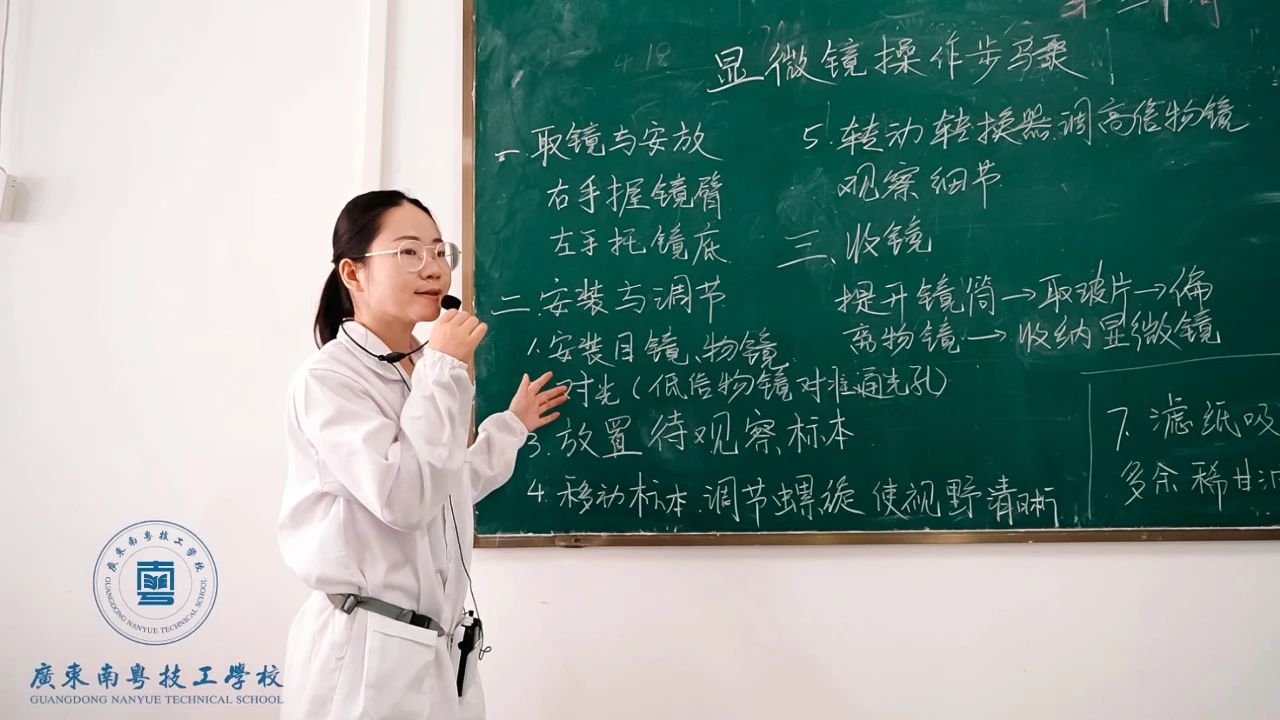 显微镜操作步骤
一、取镜与安放
右手握镜臂
左手托镜底
二、安装与调节
1.安装目镜、物镜
对光(低倍物镜对准通光孔)
3.放置待观察标本
4.移动标本.调节螺旋使视野清晰
5.转动转换器.调高倍物镜
观察细节
三、收镜
提升镜筒→取玻片→偏
离物镜→收纳显微镜
7.滤纸吸
多余稀甘油
4.18
廣東南粤技工學校
GUANGDONG NANYUE TECHNICAL SCHOOL
廣東南粤技工學校
GUANGDONG NANYUE TECHNICAL SCHOOL